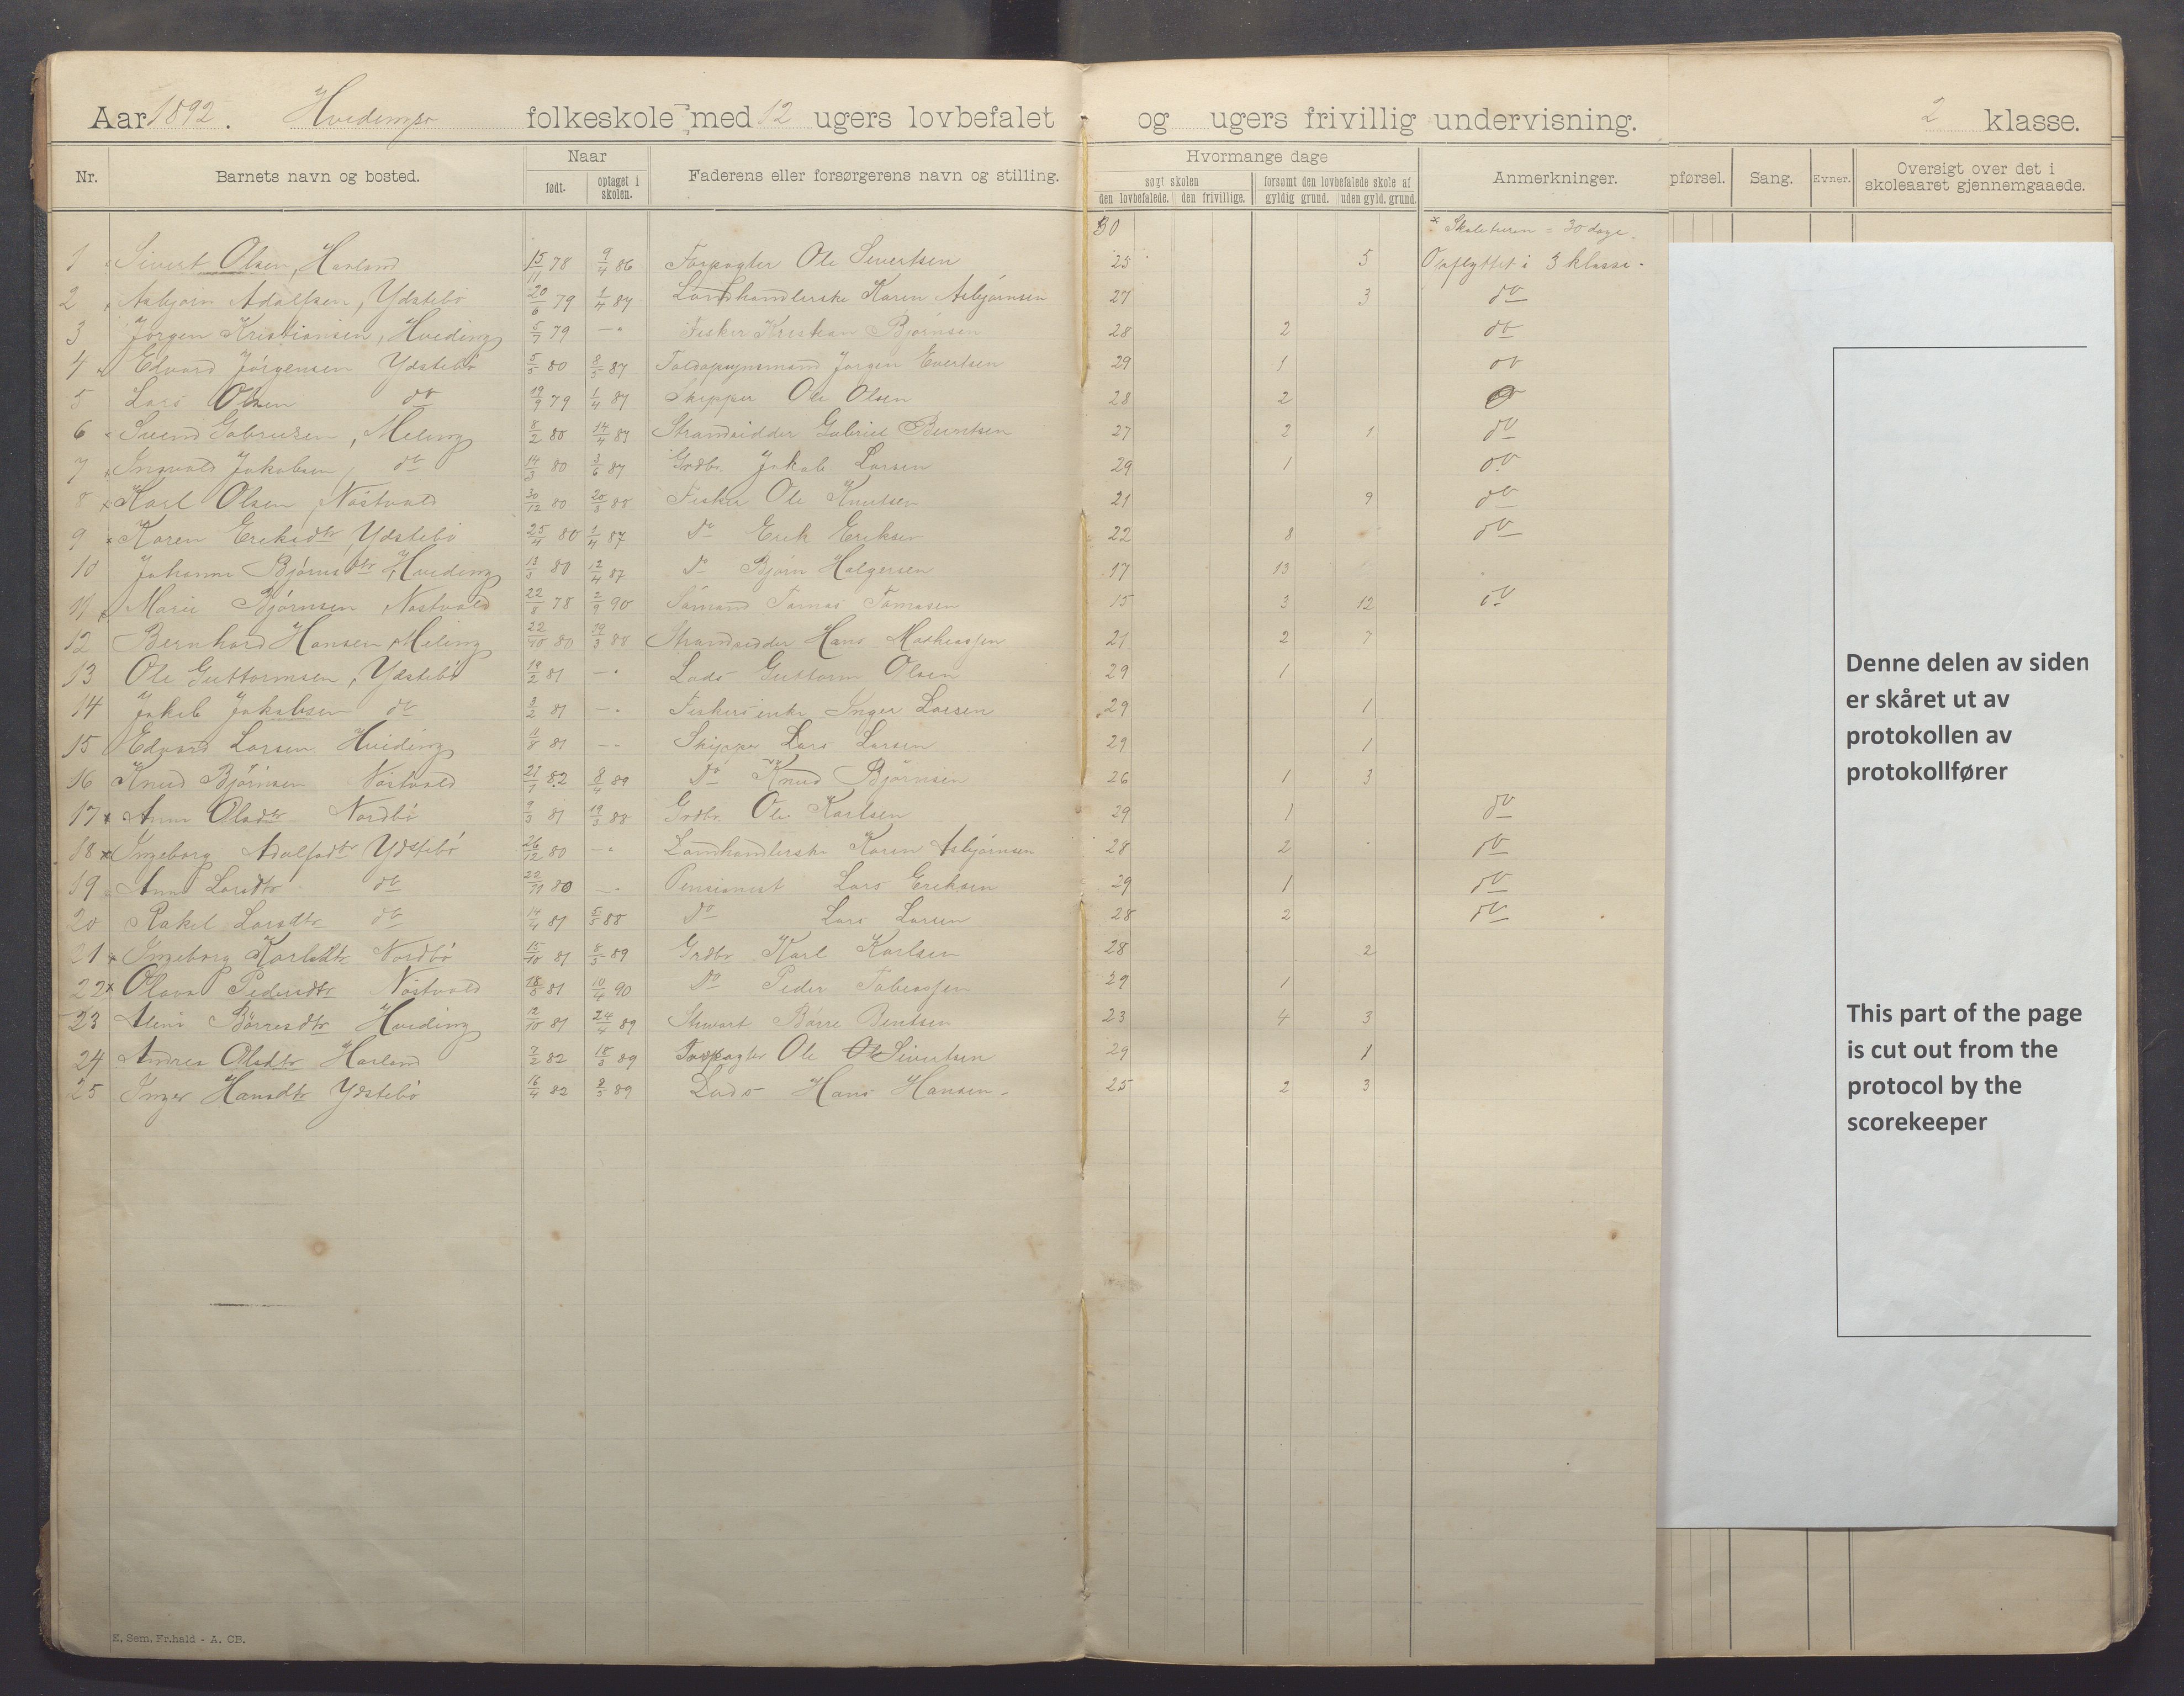 Aar 1892. Hvidingsø folkeskole med 12 ugers lovbefalet og ugers frivillig undervisning. 2 klasse.
Nr. Barnets navn og bosted. Naar født. optaget i skolen. Faderens eller forsørgerens navn og stilling. Hvormange dage søgt skolen den lovbefalede. den frivillige. forsømt den lovbefalede skole af gyldig grund. uden gyld. grund. Anmerkninger. pførsel. Sang. Evner. Oversigt over det i skoleaaret gjennemgaaede.
30 × Skoleturen = 30 dage.
1 Sivert Olsen, Harland 15/11 78 9/4 86 Forpagter Ole Sivertsen 25 5 Opflyttet i 3 klasse.
2 Asbjørn Adolfsen, Ydstebø 20/6 79 1/4 87 Landhandlerske Karen Asbjørnsen 27 3 do
3 Jørgen Kristiansen, Hviding 5/7 79 — " Fisker Kristian Bjørnsen 28 2 do
4 Edvard Jørgensen Ydstebø 5/5 80 8/3 87 Toldopsynsmand Jørgen Evertsen 29 1 do
5 Lars Olsen do 19/9 79 1/4 87 Skipper Ole Olsen 28 2
6 Svend Gabrielsen, Meling 8/2 80 14/4 87 Strandsidder Gabriel 27 2 1 do
7 Ingvald Jakobsen, do 14/3 80 3/6 87 Grdbr. Jakob Larsen 29 1 do
8 × Karl Olsen Nåstvold 30/12 80 20/3 88 Fisker Ole Knutsen 21 9 do
9 × Karen Eriksdtr, Ydstebø 25/4 80 1/4 87 Do Erik Eriksen 22 8 do
10 Johanne Bjørnsdtr, Hviding 13/3 80 12/4 87 Do Bjørn Holgersen 17 13
11 Marie Bjørnsen Nåstvold 22/8 78 2/9 90 Sømand Tomas Tomasen 15 3 12 do
12 Bernhard Hansen, Meling 22/10 80 19/3 88 Strandsidder Hans Mathiassen 21 2 7
13 Ole Guttormsen, Ydstebø 19/2 81 — " Lods Guttorm Olsen 29 1
14 Jakob Jakobsen do 3/2 81 — " Fiskers enke Inger Larsen 29 1
15 Edvard Larsen Hviding 11/8 81 — " Skipper Lars Larsen 29 1
16 Knud Bjørnsen Nåstvold 21/1 82 8/4 89 Do Knud Bjørnsen 26 1 3
17 × Anne Olsdtr Nordbø 9/3 81 19/3 88 Grdbr. Ole Karlsen 29 1 do
18 × Ingeborg Adolfsdtr Ydstebø 26/12 80 — " Landhandlerske Karen Asbjørnsen 28 2 do
19 Anna Larsdtr do 22/11 80 — " Pensionist Lars Eriksen 29 1 do
20 Rakel Larsdtr do 14/4 81 5/5 88 Do Lars Larsen 28 2 do
21 × Ingeborg Karlsdtr Nordbø 15/10 81 8/3 89 Grdbr Karl Karlsen 28 2
22 × Olava Pedersdtr Nåstvold 18/5 81 10/4 90 Do Peder Tobiassen 29 1
23 Børresdtr Hviding 12/10 81 24/4 89 Stuart Børre Bentsen 23 4 3
24 Andrea Olsdtr Harland 7/2 82 18/3 89 Forpagter Ole Sivertsen 29 1
25 Inger Hansdtr Ydstebø 16/4 82 8/3 89 Lods Hans Hansen 25 2 3
Denne delen av siden
er skåret ut av
protokollen av
protokollfører
This part of the page
is cut out from the
protocol by the
scorekeeper
E. Sem. Fr.hald - A. CB.